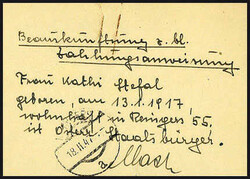 Beauskunftung z. bl.
Zahlungsanweisung
Frau Kathi Stefal
geboren, am 13.1.1917,
wohnhaft in Reingers 55,
ist Österr. Staatsbürger.
18.II.47